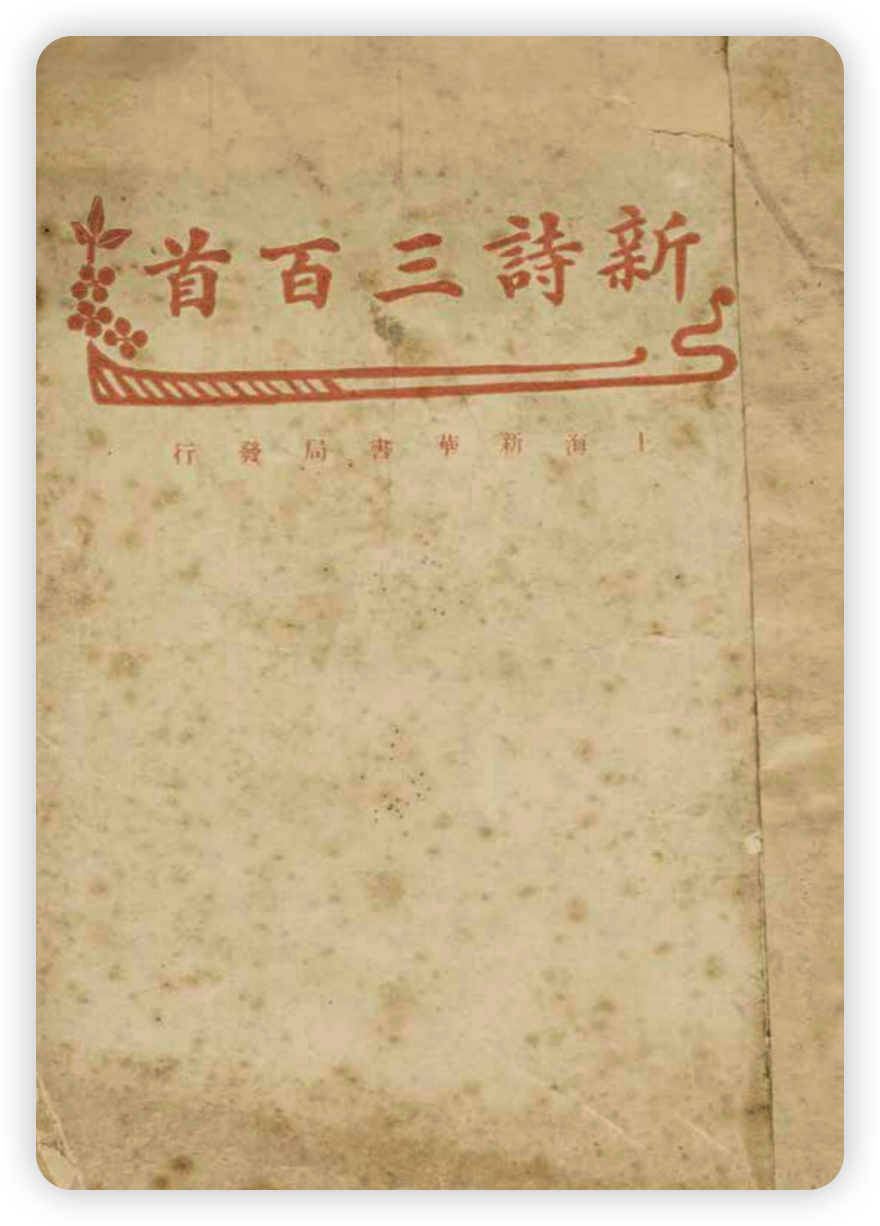 新詩三百首
上海新華書局發行